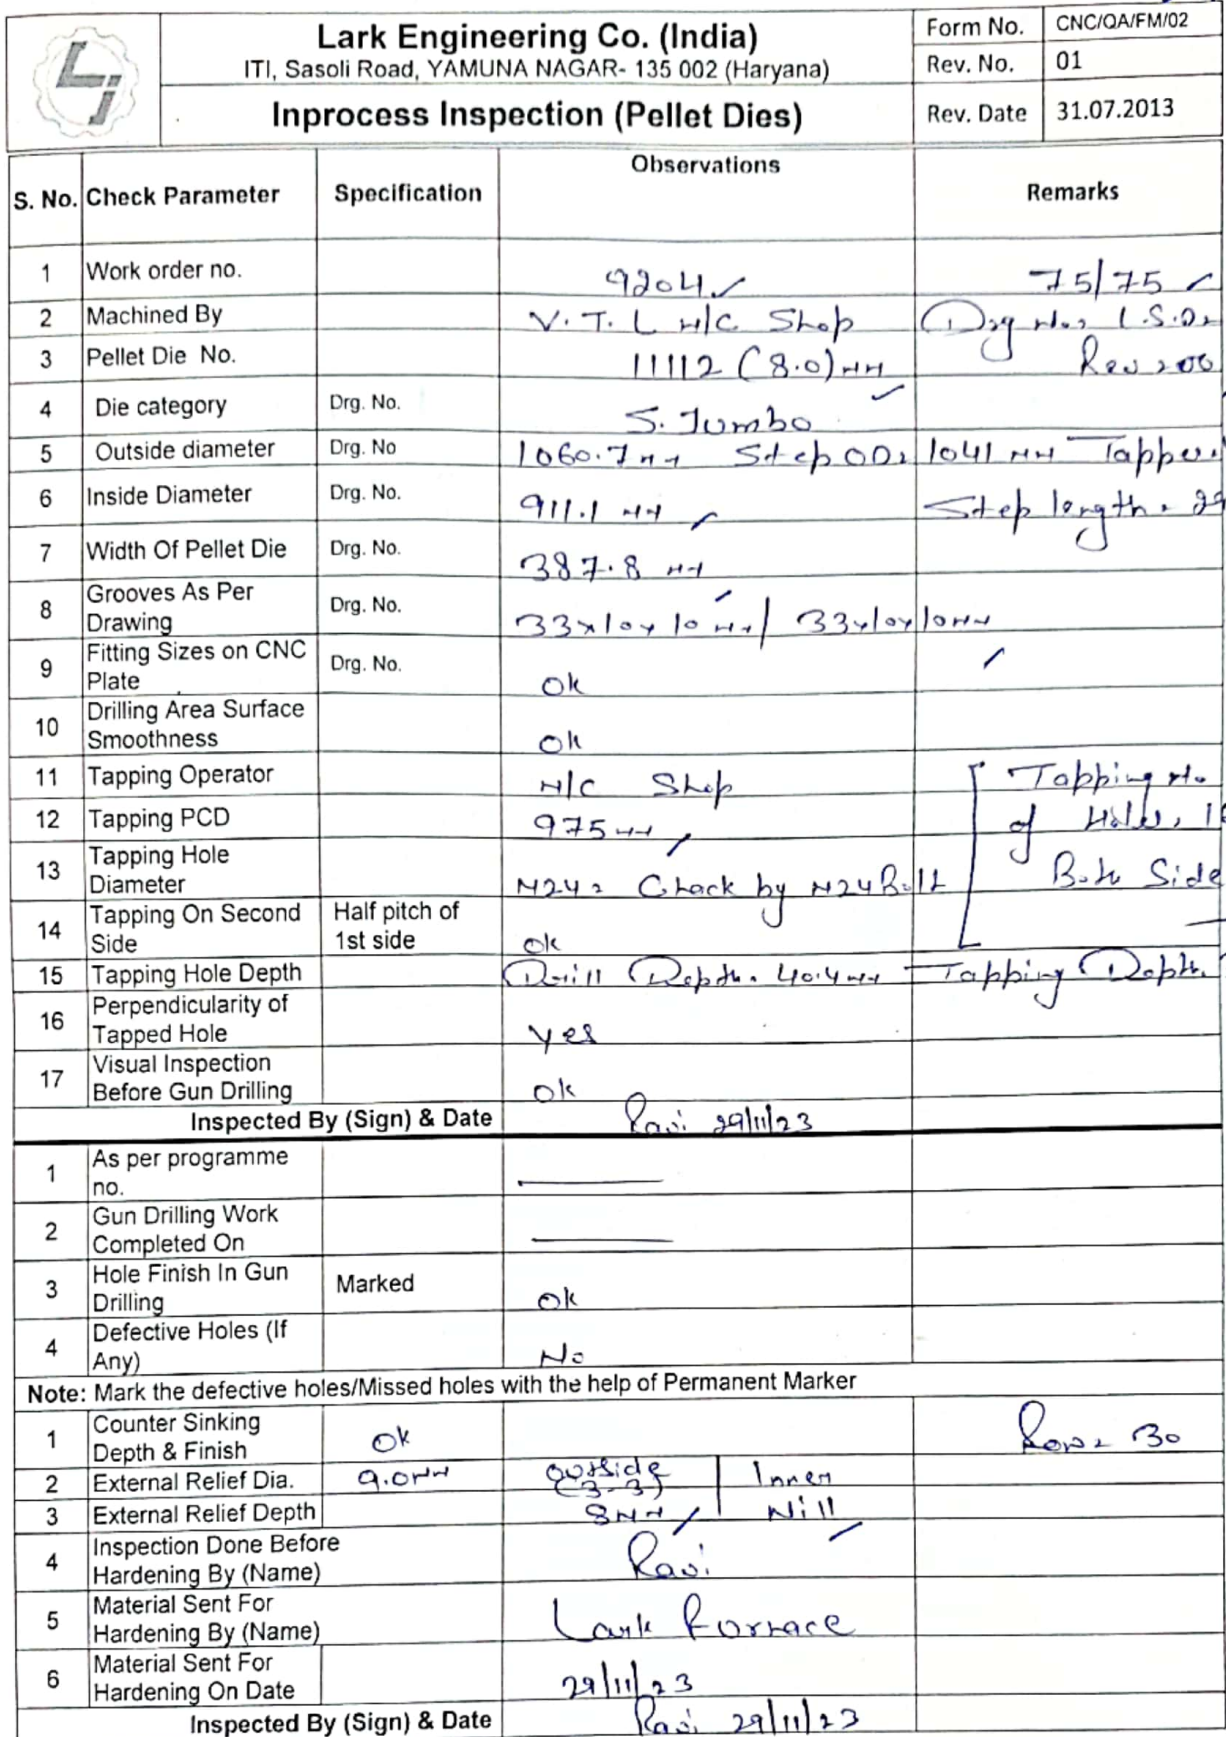 Lark Engineering Co. (India)
ITI, Sasoli Road, YAMUNA NAGAR- 135 002 (Haryana)
Inprocess Inspection (Pellet Dies)
Form No. CNC/QA/FM/02
Rev. No. 01
Rev. Date 31.07.2013
S. No. Check Parameter Specification Observations Remarks
1 Work order no. 9204 75/75
2 Machined By V.T.L M/C Shop Drg No.
3 Pellet Die No. 11112 (8.0) MM Rev 00
4 Die category Drg. No. S. Jumbo
5 Outside diameter Drg. No 1060.7 MM Step OD 1041 MM Tapper
6 Inside Diameter Drg. No. 911.1 MM Step length
7 Width Of Pellet Die Drg. No. 387.8 MM
8 Grooves As Per Drawing Drg. No. 33x10x10 MM/ 33x10x10MM
9 Fitting Sizes on CNC Plate Drg. No. Ok
10 Drilling Area Surface Smoothness Ok
11 Tapping Operator M/C Shop Tapping No.
12 Tapping PCD 975 MM of Holes
13 Tapping Hole Diameter M24 = Check by M24 Bolt Both Side
14 Tapping On Second Side Half pitch of 1st side Ok
15 Tapping Hole Depth Drill Depth = 40.4 MM Tapping Depth
16 Perpendicularity of Tapped Hole Yes
17 Visual Inspection Before Gun Drilling Ok
Inspected By (Sign) & Date Ravi 29/11/23
1 As per programme no.
2 Gun Drilling Work Completed On
3 Hole Finish In Gun Drilling Marked Ok
4 Defective Holes (If Any) No
Note: Mark the defective holes/Missed holes with the help of Permanent Marker
1 Counter Sinking Depth & Finish Ok Row = 30
2 External Relief Dia. 9.0MM Outside (3-3) Inner
3 External Relief Depth 8MM Nill
4 Inspection Done Before Hardening By (Name) Ravi
5 Material Sent For Hardening By (Name) Lark Furnace
6 Material Sent For Hardening On Date 29/11/23
Inspected By (Sign) & Date Ravi 29/11/23